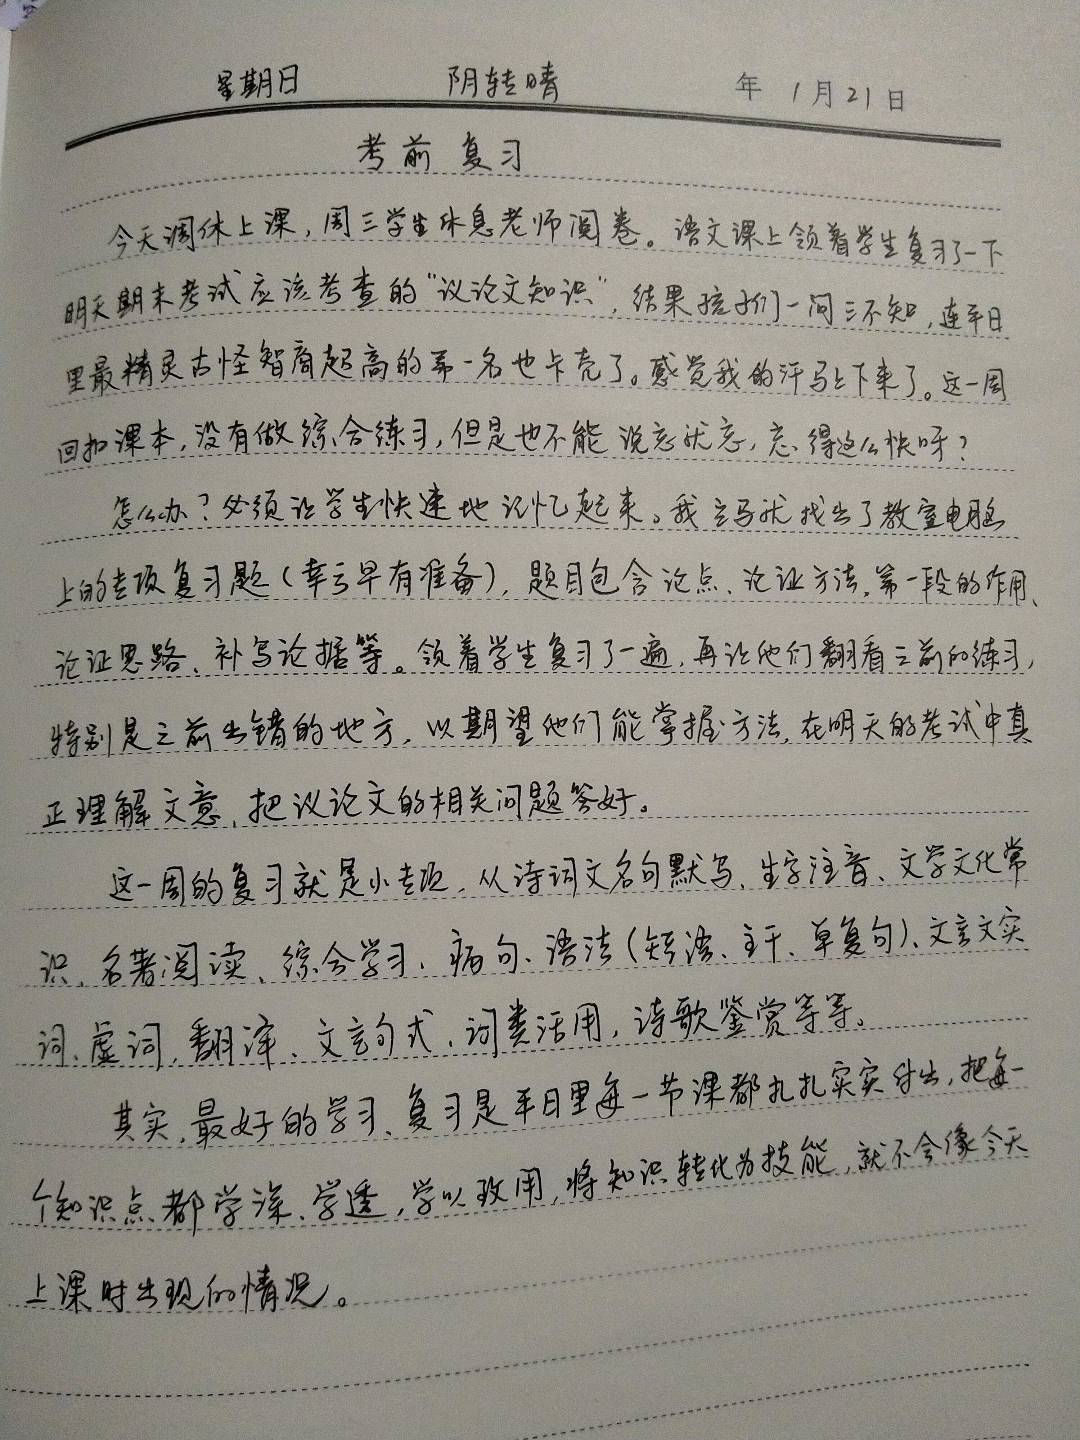 星期日 阴转晴 年 1月21日
考前复习
今天调休上课，周三学生休息老师阅卷。语文课上领着学生复习了一下
明天期末考试应该考查的“议论文知识”，结果孩子们一问三不知，连平日
里最精灵古怪智商超高的第一名也卡壳了。感觉我的汗马上下来了。这一周
回扣课本，没有做综合练习，但是也不能说忘就忘，忘得这么快呀？
怎么办？必须让学生快速地记忆起来。我立马就找出了教室电脑
上的专项复习题（幸亏早有准备），题目包含论点、论证方法、第一段的作用、
论证思路、补写论据等。领着学生复习了一遍，再让他们翻看之前的练习，
特别是之前出错的地方，以期望他们能掌握方法，在明天的考试中真
正理解文意，把议论文的相关问题答好。
这一周的复习就是小专项，从诗词文名句默写、生字注音、文学文化常
识、名著阅读、综合学习、病句、语法（短语、主干、单复句）、文言文实
词、虚词，翻译、文言句式、词类活用，诗歌鉴赏等等。
其实，最好的学习、复习是平日里每一节课都扎扎实实付出，把每一
个知识点都学深、学透，学以致用，将知识转化为技能，就不会像今天
上课时出现的情况。